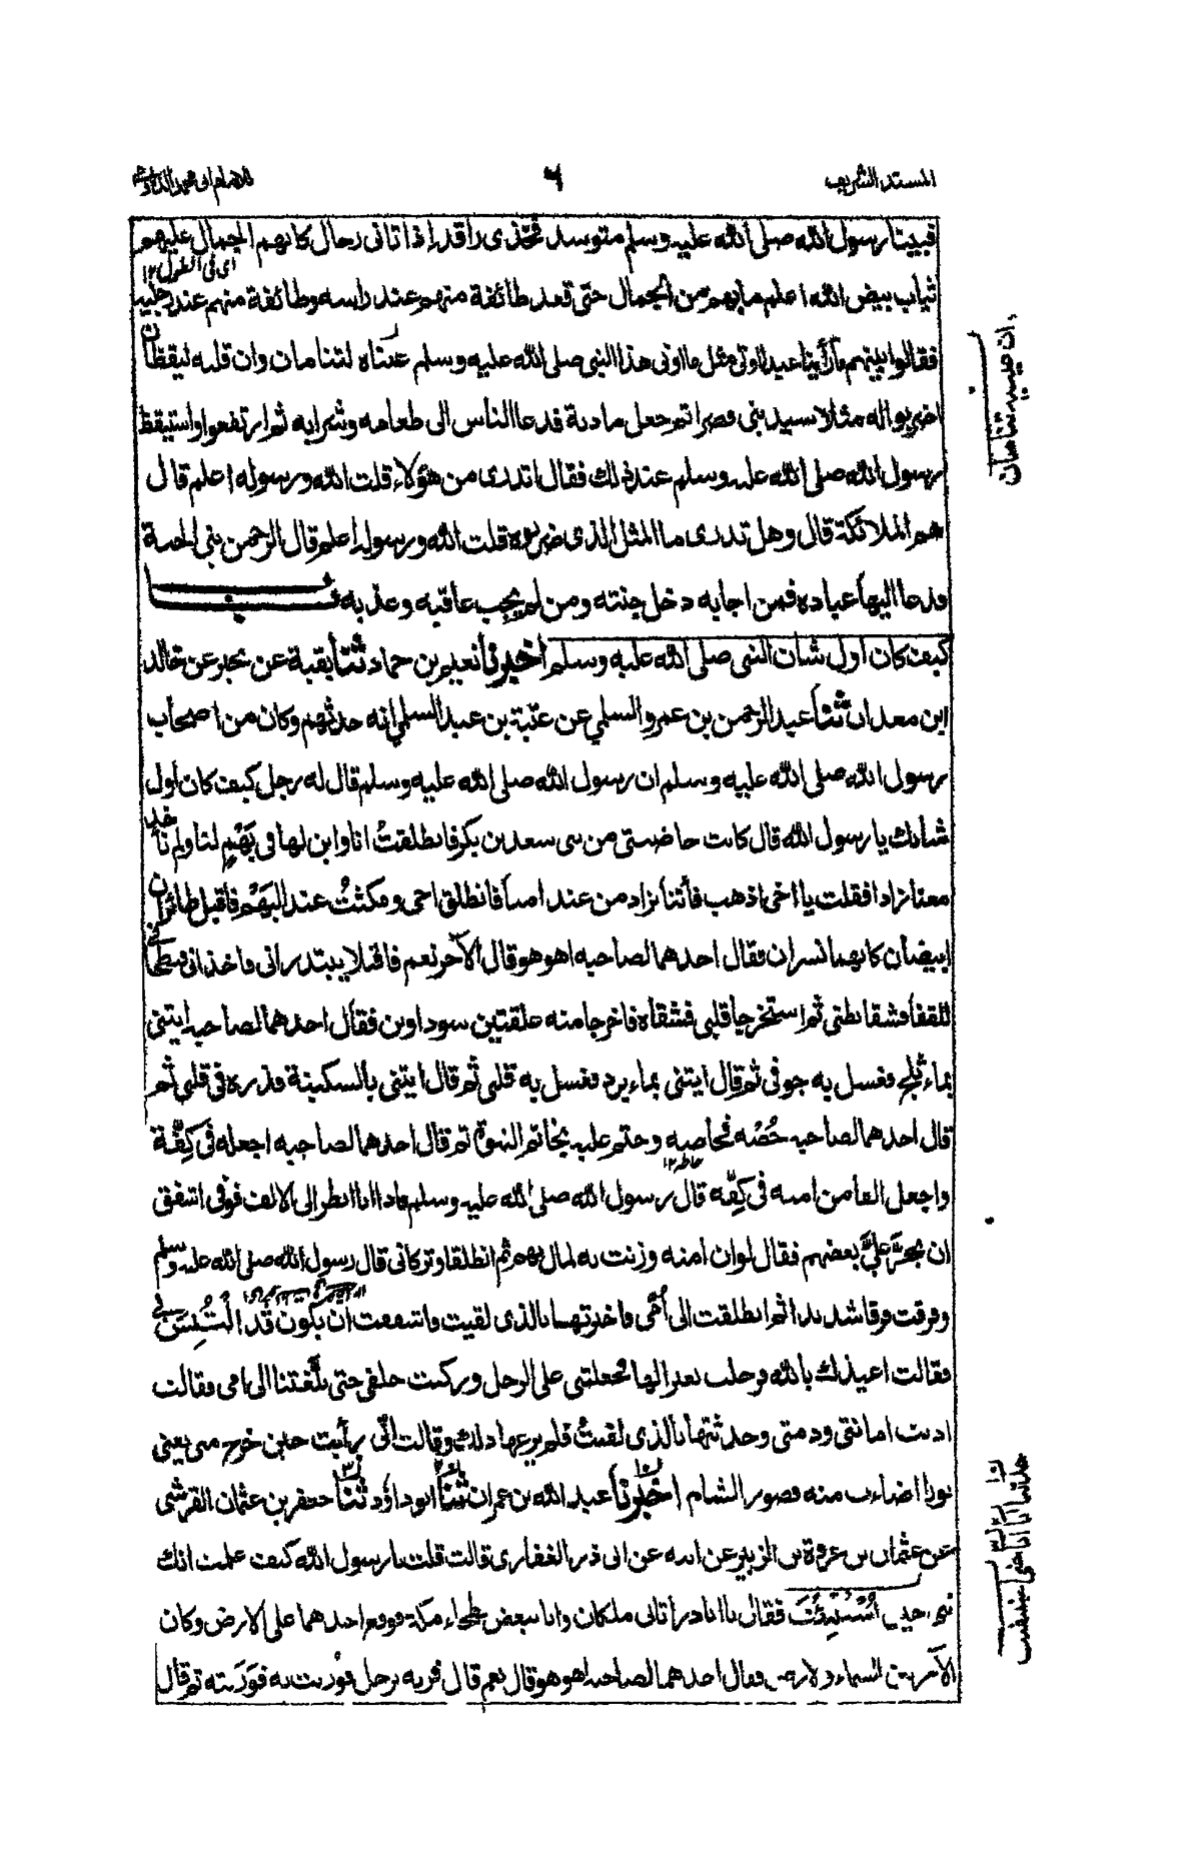 المسند الشريف
٦
للامام ابى محمد الدارمى
فبينا رسول الله صلى الله عليه وسلم متوسد فخذى راقد اذا اتانى رجال كانهم الجمال عليهم
اى فى الطول ١٢
ثياب بيض الله اعلم ما بهم من الجمال حتى قعد طائفة منهم عند راسه وطائفة منهم عند رجليه
فقالوا بينهم ما رأينا عبدا اوتى مثل ما اوتى هذا النبى صلى الله عليه وسلم عيناه لتنامان وان قلبه ليقظان
اضربوا له مثلا سيد بنى قصرا ثم جعل مادبة فدعا الناس الى طعامه وشرابه ثم ارتفعوا واستيقظ
رسول الله صلى الله عليه وسلم عند ذلك فقال اتدرى من هؤلاء قلت الله ورسوله اعلم قال
هم الملائكة قال وهل تدرى ما المثل الذى ضربوه قلت الله ورسوله اعلم قال الرحمن بنى الجنة
فدعا اليها عباده فمن اجابه دخل جنته ومن لم يجب عاقبه وعذبه
كيف كان اول شان النبى صلى الله عليه وسلم اخبرنا نعيم بن حماد ثنا بقية عن بحير عن خالد
ابن معدان ثنا عبد الرحمن بن عمرو السلمي عن عتبة بن عبد السلمي انه حدثهم وكان من اصحاب
رسول الله صلى الله عليه وسلم ان رسول الله صلى الله عليه وسلم قال له رجل كيف كان اول
شانك يا رسول الله قال كانت حاضنتى من بنى سعد بن بكر فانطلقتُ انا وابن لها فى بَهْمٍ لنا ولم نأخذ
معنا زادا فقلت يا اخى اذهب فأتنا بزاد من عند امنا فانطلق اخى ومكثتُ عند البَهْمِ فاقبل طائران
ابيضان كانهما نسران فقال احدهما لصاحبه اهو هو قال الآخر نعم فاقبلا يبتدرانى فاخذانى فبطحانى
للقفا فشقا بطنى ثم استخرجا قلبى فشقاه فاخرجا منه علقتين سوداوين فقال احدهما لصاحبه ايتنى
بماء ثلج فغسل به جوفى ثم قال ايتنى بماء برد فغسل به قلبى ثم قال ايتنى بالسكينة فذره فى قلبى ثم
قال احدهما لصاحبه حُصْه فحاصه وختم عليه بخاتم النبوة ثم قال احدهما لصاحبه اجعله فى كِفّة
خاطه ١٢
واجعل الفا من امته فى كِفّة قال رسول الله صلى الله عليه وسلم فاذا انا انظر الى الالف فوقى اشفق
ان يخرّ عليّ بعضهم فقال لو ان امته وزنت به لمال بهم ثم انطلقا وتركانى قال رسول الله صلى الله عليه وسلم
وفرقت فرقا شديدا ثم انطلقت الى أمّى فاخبرتها بالذى لقيت فاشفقت ان يكون قد الْتُبِسَ بى
فقالت اعيذك بالله فرحلت بعيرا لها فجعلتنى على الرحل وركبت خلفى حتى بلّغتنا الى امى فقالت
اديت امانتى وذمتى وحدثتها بالذى لقيتُ فلم يرعها ذلك وقالت انّى رأيت حين خرج منى يعنى
نورا اضاءت منه قصور الشام اخبرنا عبد الله بن عمران ثنا ابو داؤد ثنا جعفر بن عثمان القرشى
عن عثمان بن عروة بن الزبير عن ابيه عن ابى ذر الغفارى قالت قلت يا رسول الله كيف علمت انك
نبى حين اسْتُنْبِئْتَ فقال يا ابا ذر اتانى ملكان وانا ببعض بطحاء مكة فوقع احدهما على الارض وكان
الآخر بين السماء والارض فقال احدهما لصاحبه اهو هو قال نعم قال فزنه برجل فوُزنت به فوَزَنته ثم قال
ان عينيه تنامان